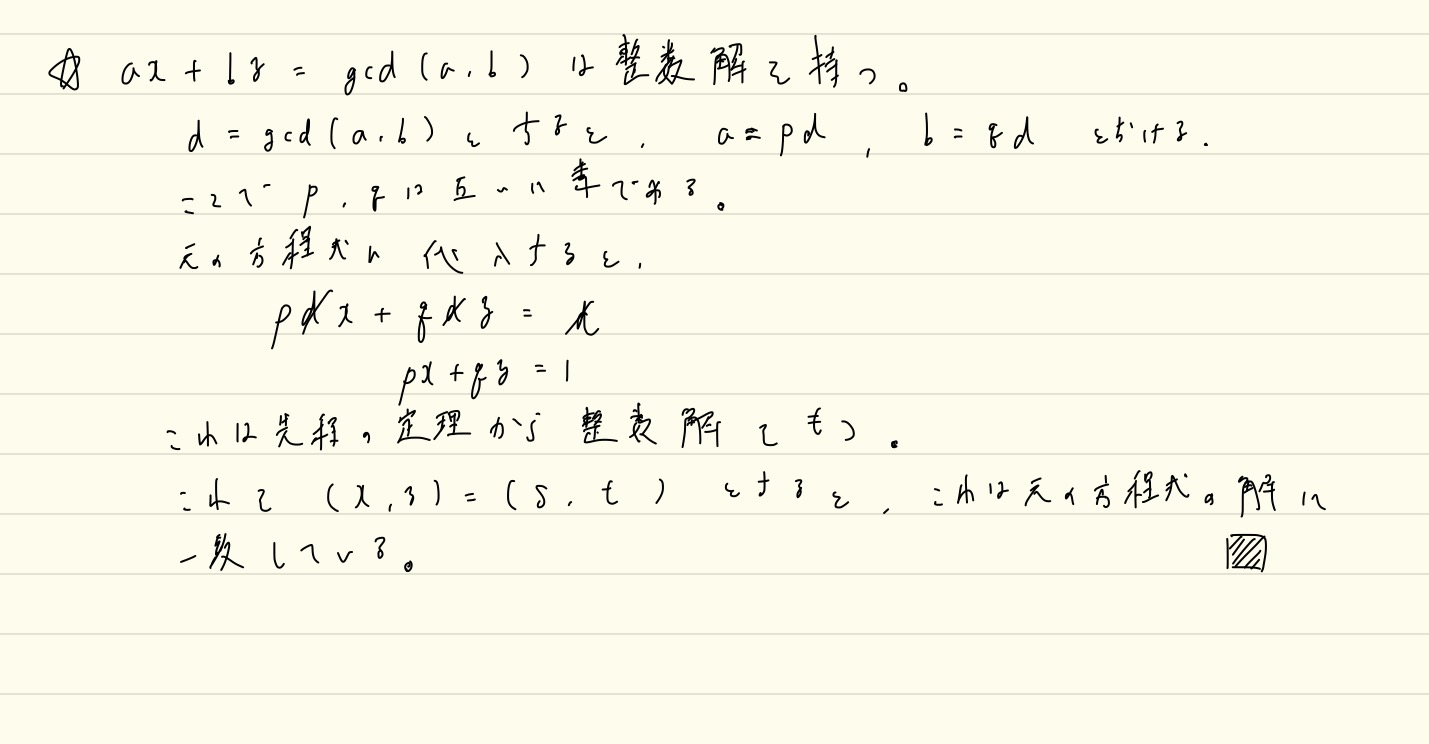 ☆ ax + by = gcd(a, b) は整数解を持つ。
d = gcd(a, b) とすると, a = pd, b = qd とおける.
ここで p, q は互いに素である。
元の方程式に代入すると,
pdx + qdy = d
px + qy = 1
これは先程の定理から整数解をもつ.
これを (x, y) = (s, t) とすると, これは元の方程式の解に
一致している。